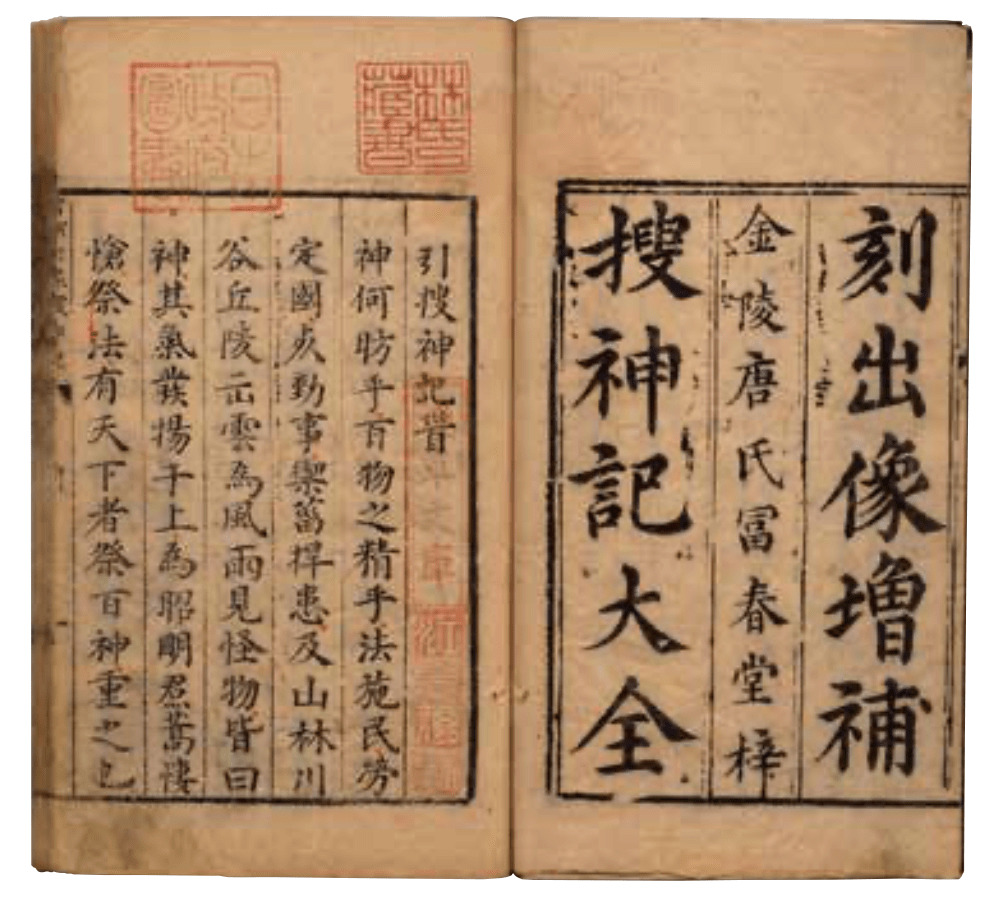 刻出像增補
金陵唐氏富春堂梓
搜神記大全
林氏藏書
日本政府圖書
引搜神記首
神何昉乎百物之精乎法施民勞
定國死勤事禦菑捍患及山林川
谷丘陵出雲為風雨見怪物皆曰
神其氣發揚于上為昭明焄蒿悽
愴祭法有天下者祭百神重之也